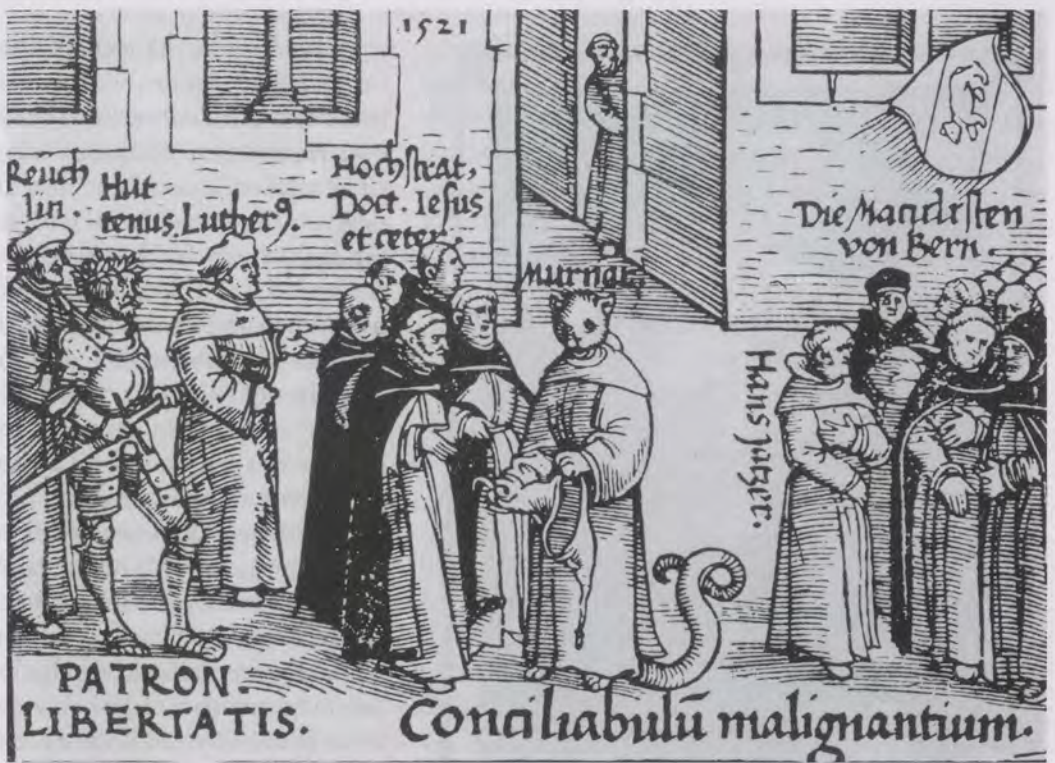 1521
Reuch
lin.
Hut-
tenus.
Luther9.
Hochstrat,
Doct. Iesus
et ceter.
Murnar,
Die Maculisten
von Bern.
Hans jatzer.
PATRON.
LIBERTATIS.
Conciliabulū malignantium.